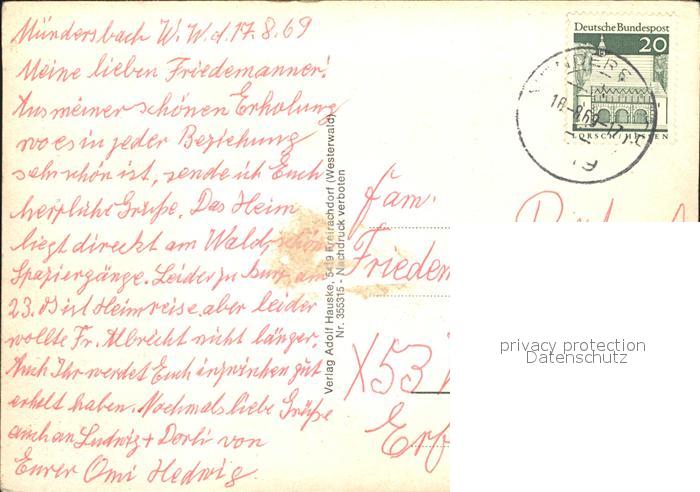 Mündersbach W.W.d.17.8.69
Meine lieben Friedemänner!
Aus meiner schönen Erholung
wo es in jeder Beziehung
sehr schön ist, sende ich Euch
herzliche Grüße. Das Heim
liegt direkt am Wald, schöne
Spaziergänge. Leider zu kurz, am
23. ist Heimreise aber leider
wollte Fr. Albrecht nicht länger,
Auch Ihr werdet Euch inzwischen gut
erholt haben. Nochmals liebe Grüße
auch an Ludwig + Dorli von
Eurer Omi Hedwig.
Verlag Adolf Hauske, 5419 Freirachdorf (Westerwald)
Nr. 355315 - Nachdruck verboten
Deutsche Bundespost
20
LORSCH/HESSEN
18.-8.69-17
Fam.
Frieden
53
Erf
privacy protection
Datenschutz